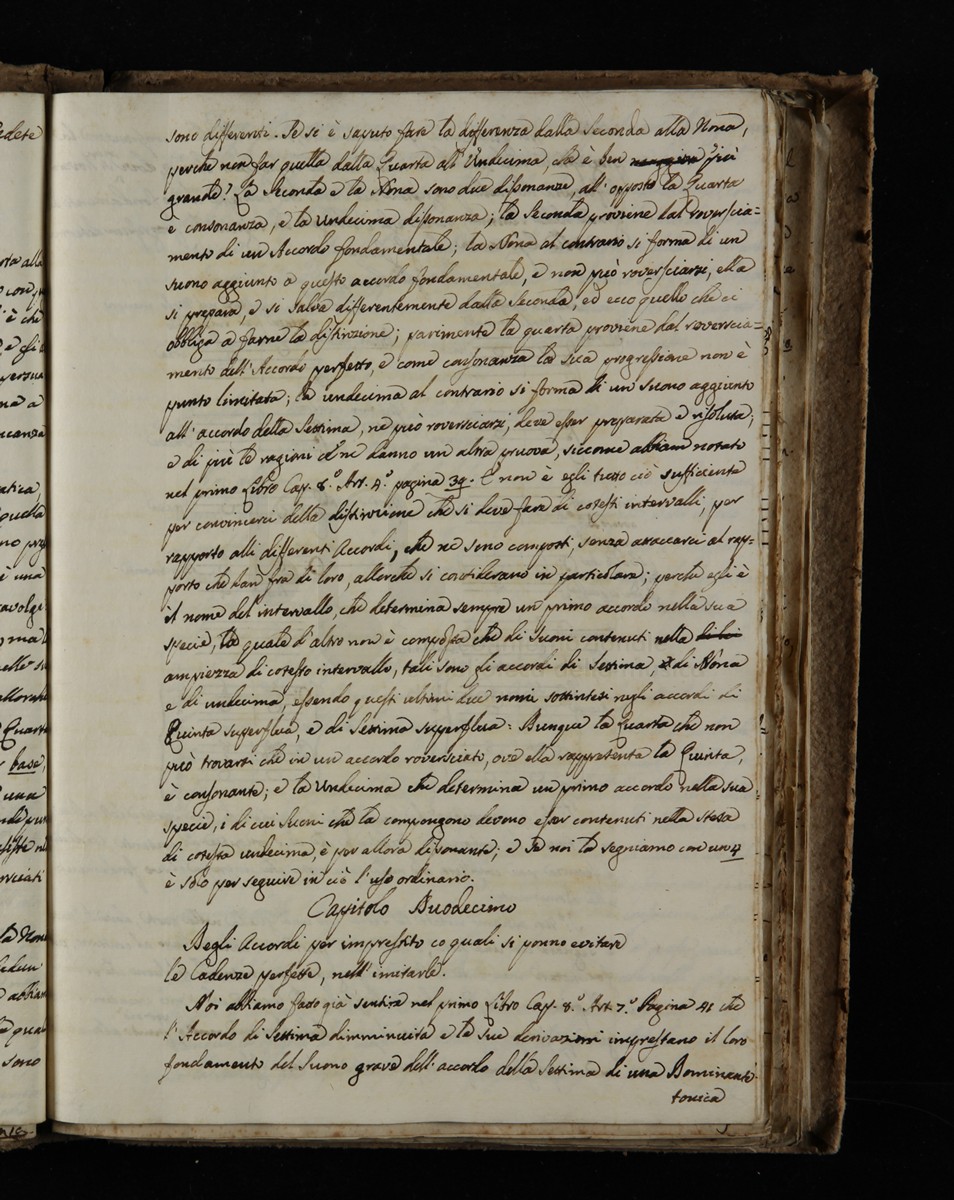 sono differenti. Se si è saputo fare la differenza dalla Seconda alla Nona,
perche non far quella dalla Quarta all' Undecima, che è ben più
grande? La Seconda e la Nona sono due dissonanze, all' opposto la Quarta
è consonanza, e la Undecima dissonanza; la Seconda proviene dal roverscia=
mento di un Accordo fondamentale; la Nona al contrario si forma di un
suono aggiunto a questo accordo fondamentale, e non può roversciarsi, ella
si prepara, e si salva differentemente dalla Seconda, ed ecco quello che ci
obbliga a farne la distinzione; parimente la quarta proviene dal roverscia=
mento dell' Accordo perfetto, e come consonanza la sua progressione non è
punto limitata; la undecima al contrario si forma di un suono aggiunto
all' accordo della Settima, nè può roversciarsi, deve esser preparata e risoluta;
e di più le ragioni che ne danno un altra pruova, siccome abbiam notato
nel primo Libro Cap. 8.º Art. 4.º pagina 39. E non è egli tutto ciò sufficiente
per convincerci della distinzione che si deve fare di cotesti intervalli, per
rapporto alli differenti Accordi, che ne sono composti, senza attaccarci al rap=
porto che han fra di loro, allorche si considerano in particolare; perche egli è
il nome del' intervallo, che determina sempre un primo accordo nella sua
specie, la quale d'altro non è composta che di suoni contenuti nella
ampiezza di cotesto intervallo, tali sono gli accordi di Settima, di Nona
e di undecima, essendo questi ultimi due nomi sottintesi negli accordi di
Quinta superflua, e di Settima superflua: Dunque la Quarta che non
può trovarsi che in un accordo roversciato, ove ella rappresenta la Quinta,
è consonante; e la Undecima che determina un primo accordo nella sua
specie, i di cui Suoni che la compongono devono esser contenuti nella stessa
di cotesta undecima, è per allora dissonante; e se noi la segniamo con un 4
è solo per seguire in ciò l'uso ordinario.
Capitolo Duodecimo
Degli Accordi per imprestito co quali si ponno evitare
le Cadenze perfette, nell' imitarle.
Noi abbiamo fatto già sentire nel primo Libro Cap. 8.º Art. 7.º Pagina 41 che
l' Accordo di Settima dimminuita e le sue derivazioni imprestano il loro
fondamento del suono grave dell' accordo della Settima di una Dominante
tonica